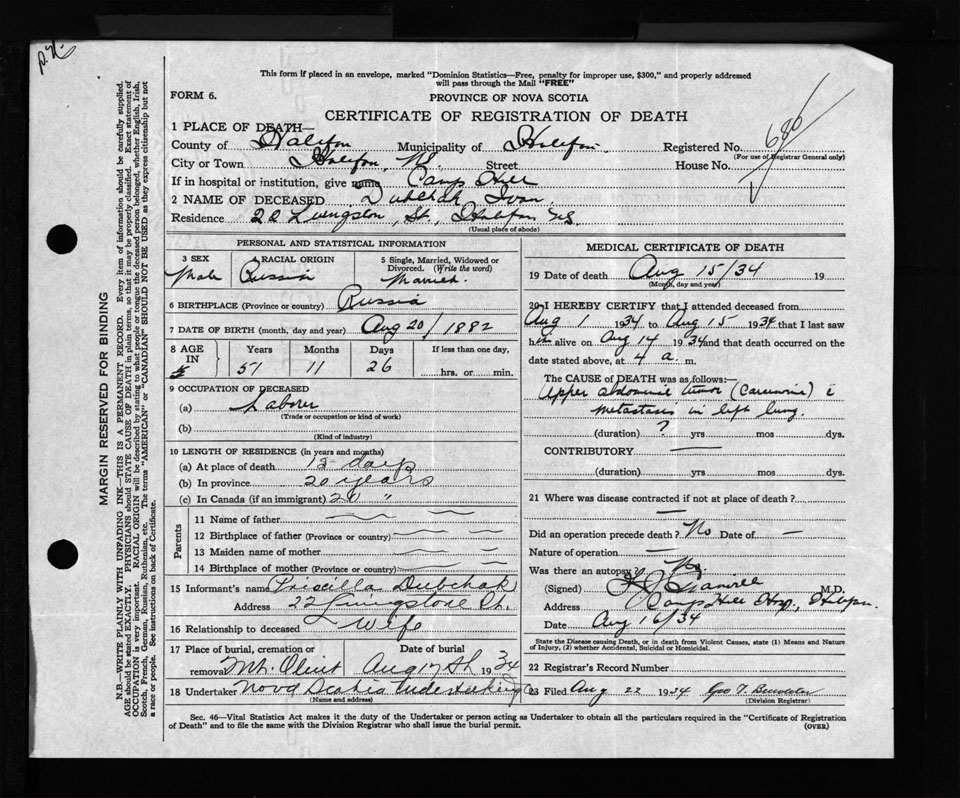 This form if placed in an envelope, marked "Dominion Statistics—Free, penalty for improper use, $300," and properly addressed
will pass through the Mail "FREE"
FORM 6.
PROVINCE OF NOVA SCOTIA
CERTIFICATE OF REGISTRATION OF DEATH
686
1 PLACE OF DEATH—
County of Halifax Municipality of Halifax Registered No.
(For use of Registrar General only)
City or Town Halifax, NS Street House No.
If in hospital or institution, give name Camp Hill
2 NAME OF DECEASED Dubchak Ivan
Residence 22 Livingston, St, Halifax NS
(Usual place of abode)
PERSONAL AND STATISTICAL INFORMATION
3 SEX Male
RACIAL ORIGIN Russia
5 Single, Married, Widowed or Divorced. (Write the word) Married.
6 BIRTHPLACE (Province or country) Russia
7 DATE OF BIRTH (month, day and year) Aug 20/1882
8 AGE IN Years Months Days If less than one day,
51 11 26 hrs. or min.
9 OCCUPATION OF DECEASED
(a) Laborer
(Trade or occupation or kind of work)
(b)
(Kind of industry)
10 LENGTH OF RESIDENCE (in years and months)
(a) At place of death days
(b) In province 20 years
(c) In Canada (if an immigrant) 20 "
Parents
11 Name of father
12 Birthplace of father (Province or country)
13 Maiden name of mother
14 Birthplace of mother (Province or country)
15 Informant's name Priscilla Dubchak
Address 22 Livingstone St.
16 Relationship to deceased Wife
17 Place of burial, cremation or removal Mt. Olivet Date of burial Aug 17th 1934
18 Undertaker Nova Scotia Undertaking Co
(Name and address)
MEDICAL CERTIFICATE OF DEATH
19 Date of death Aug 15/34 19
(Month, day and year)
20 I HEREBY CERTIFY that I attended deceased from
Aug 1 1934 to Aug 15 1934 that I last saw
him alive on Aug 14 1934 and that death occurred on the
date stated above, at 4 a. m.
The CAUSE OF DEATH was as follows:—
Upper abdominal tumor (Carcinoma) c
metastasis in left lung.
(duration) ? yrs mos dys.
CONTRIBUTORY —
(duration) yrs mos dys.
21 Where was disease contracted if not at place of death?
—
Did an operation precede death? No Date of —
Nature of operation —
Was there an autopsy? No
(Signed) M.D.
Address Camp Hill Hosp., Halifax.
Date Aug 16/34
State the Disease causing Death, or in death from Violent Causes, state (1) Means and Nature
of Injury, (2) whether Accidental, Suicidal or Homicidal.
22 Registrar's Record Number
23 Filed Aug 22 1934 Geo T.
(Division Registrar)
Sec. 46—Vital Statistics Act makes it the duty of the Undertaker or person acting as Undertaker to obtain all the particulars required in the "Certificate of Registration
of Death" and to file the same with the Division Registrar who shall issue the burial permit.
(OVER)
MARGIN RESERVED FOR BINDING
N.B.—WRITE PLAINLY WITH UNFADING INK—THIS IS A PERMANENT RECORD. Every item of information should be carefully supplied.
AGE should be stated EXACTLY. PHYSICIANS should STATE CAUSE OF DEATH in plain terms, so that it may be properly classified. Exact statement of
OCCUPATION is very important. RACIAL ORIGIN will be described by stating to what people or tongue the deceased person belonged, whether English, Irish,
Scotch, French, German, Russian, Ruthenian, etc. The terms "AMERICAN" or "CANADIAN" SHOULD NOT BE USED as they express citizenship but not
a race or people. See instructions on back of Certificate.